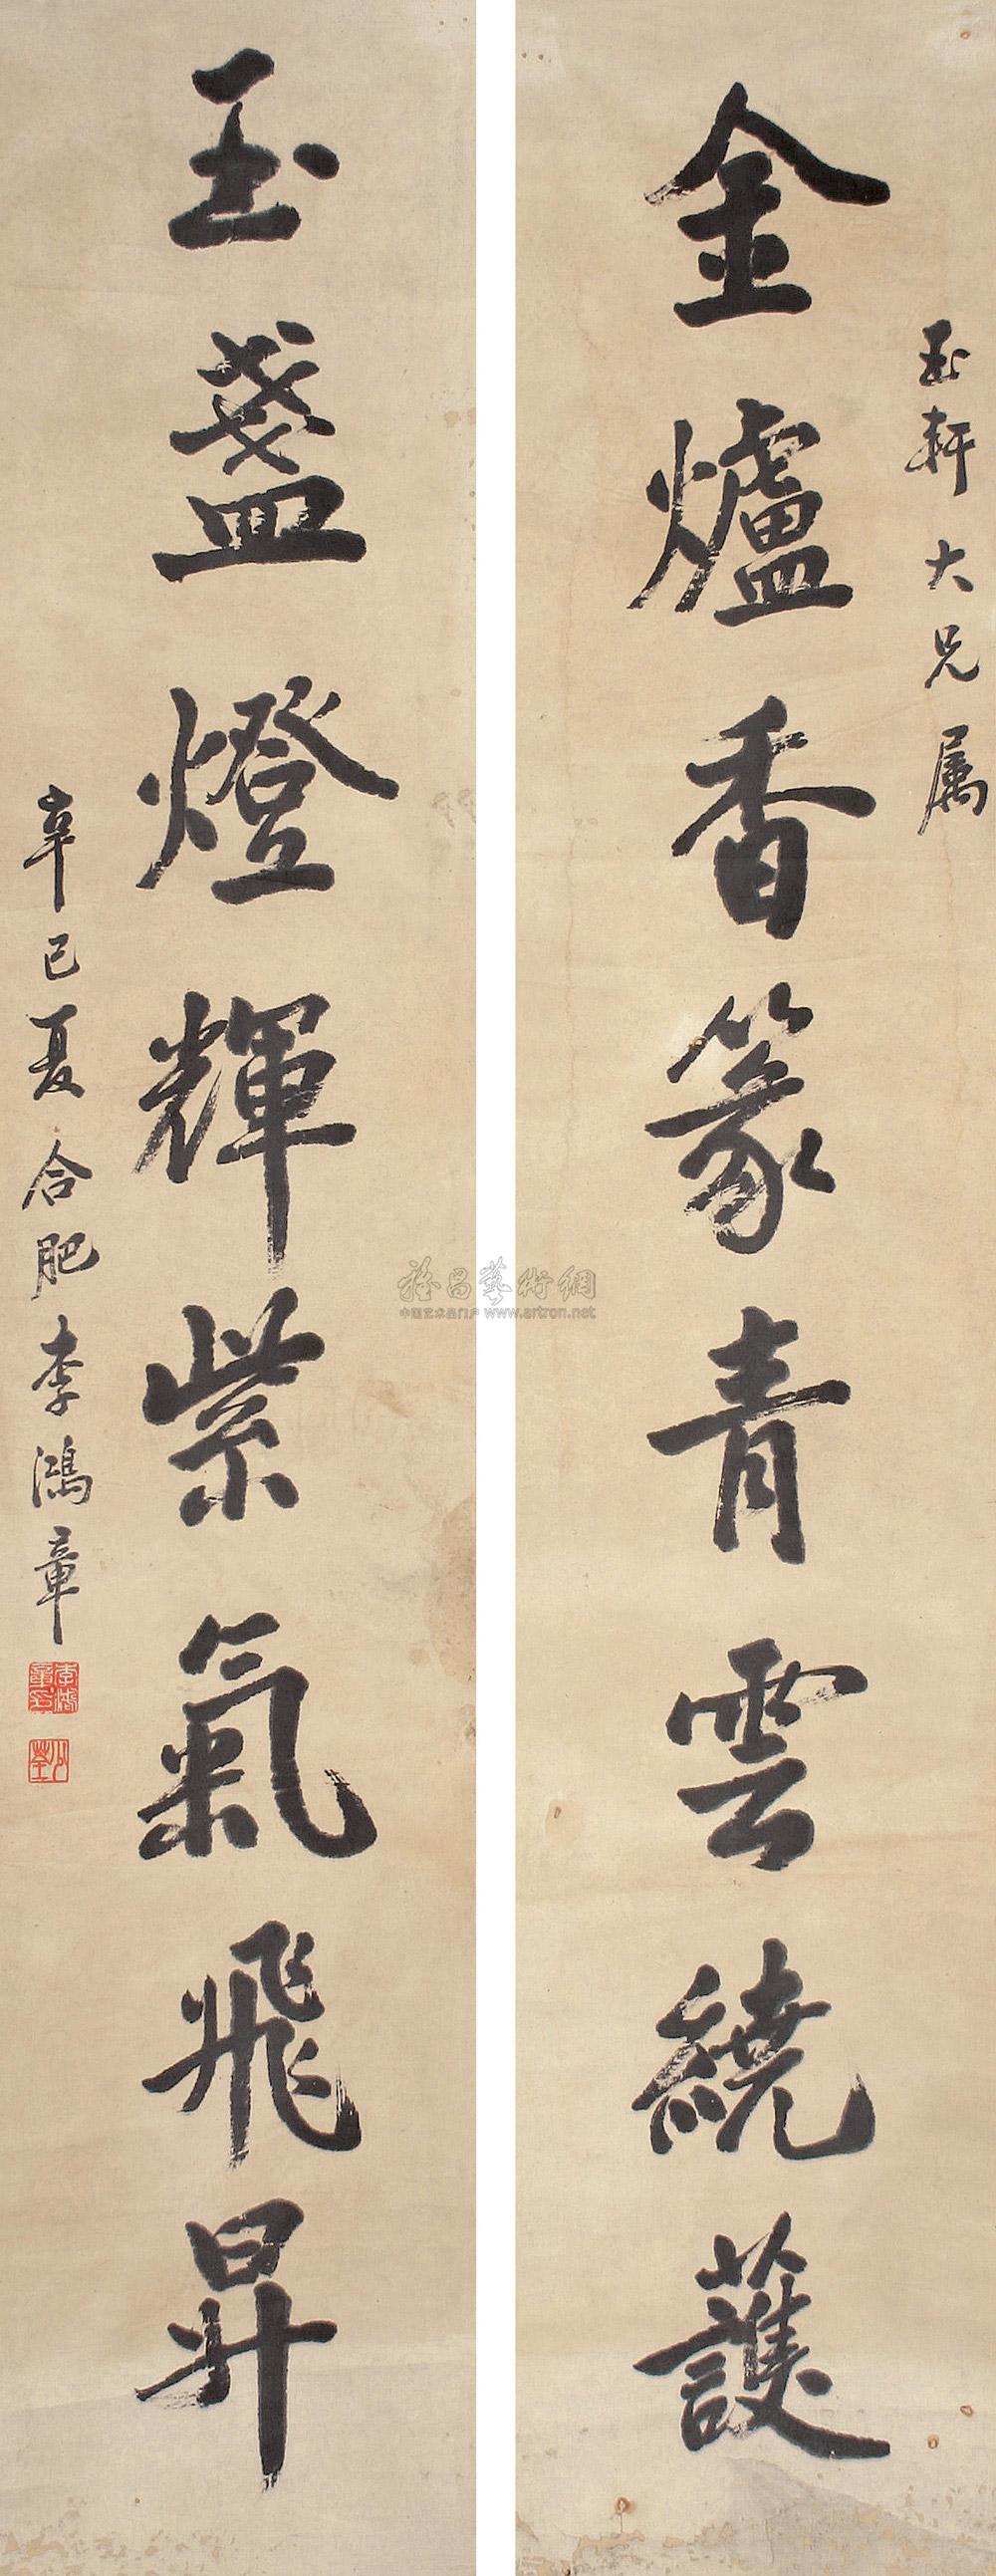 玉軒大兄属
金爐香篆青雲繞護
玉盞燈輝紫氣飛昇
辛巳夏合肥李鴻章
李鴻章印
少荃
雅昌藝術網
中国艺术品门户 www.artron.net